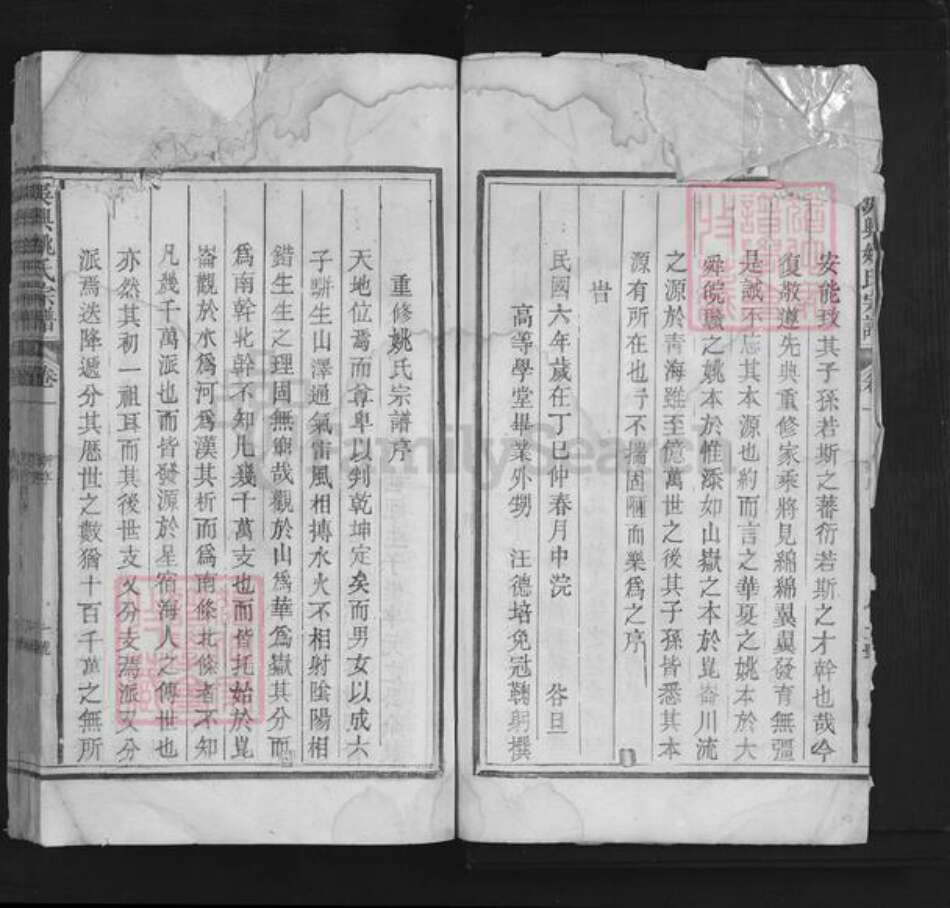 安能致其子孫若斯之蕃衍若斯之才幹也哉今
復敬遵先典重修家乘將見綿綿翼翼發育無彊
是誠不忘其本源也約而言之華夏之姚本於大
舜皖驥之姚本於惟添如山嶽之本於崑崙川流
之源於青海雖至億萬世之後其子孫皆悉其本
源有所在也予不揣固陋而樂爲之序
旹
民國六年歲在丁巳仲春月中浣 谷旦
高等學堂畢業外甥 汪德培免冠鞠躬撰
重修姚氏宗譜序
天地位焉而尊卑以判乾坤定矣而男女以成六
子駢生山澤通氣雷風相搏水火不相射陰陽相
錯生生之理固無窮哉觀於山爲華爲嶽其分而
爲南幹北幹不知凡幾千萬支也而皆托始於崑
崙觀於水爲河爲漢其析而爲南條北條者不知
凡幾千萬派也而皆發源於星宿海人之傳世也
亦然其初一祖耳而其後世支又分支焉派又分
派焉迭降遞分其歷世之數猶十百千萬之無所
吳興姚氏宗譜 卷一
FamilySearch